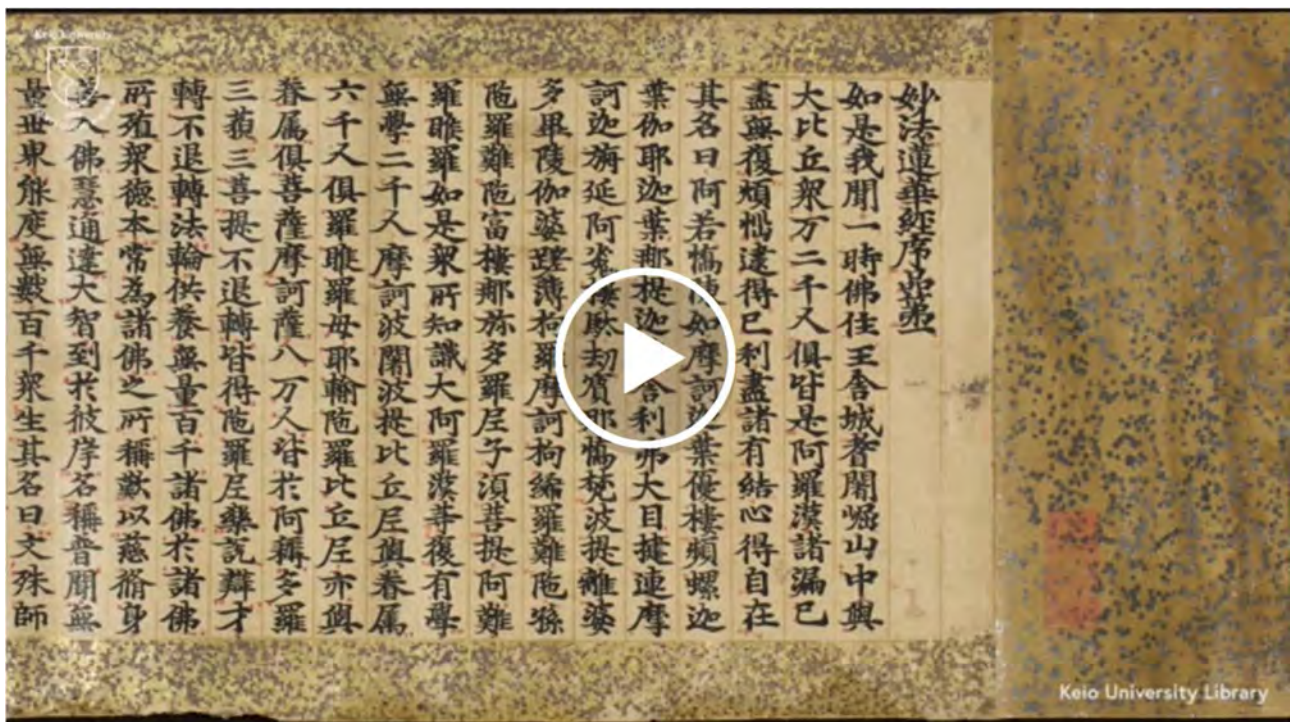 Keio University
妙法蓮華經序品苐一
如是我聞一時佛住王舍城耆闍崛山中與
大比丘衆万二千人俱皆是阿羅漢諸漏已
盡無復煩惱逮得己利盡諸有結心得自在
其名曰阿若憍陳如摩訶迦葉優樓頻螺迦
葉伽耶迦葉那提迦葉舍利弗大目揵連摩
訶迦旃延阿㝹樓馱劫賓那憍梵波提離婆
多畢陵伽婆蹉薄拘羅摩訶拘絺羅難陁孫
陁羅難陁富樓那弥多羅尼子湏菩提阿難
羅睺羅如是衆所知識大阿羅漢等復有學
無學二千人摩訶波闍波提比丘尼與眷属
六千人俱羅睺羅母耶輸陁羅比丘尼亦與
眷属俱菩薩摩訶薩八万人皆於阿耨多羅
三藐三菩提不退轉皆得陁羅尼樂說辯才
轉不退轉法輪供養無量百千諸佛於諸佛
所殖衆德本常為諸佛之所稱歎以慈脩身
善入佛慧通達大智到於彼岸名稱普聞無
量世界能度無數百千衆生其名曰文殊師
Keio University Library